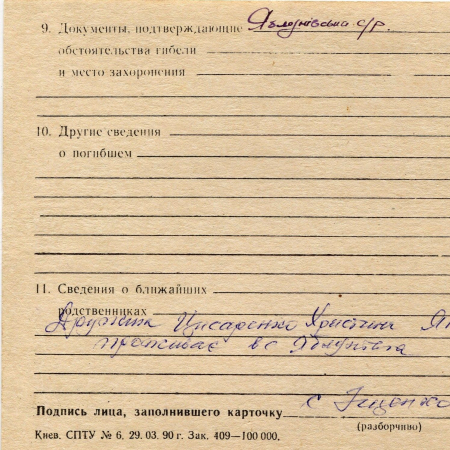 9. Документы, подтверждающие Яблунівська с/р.
обстоятельства гибели
и место захоронения
10. Другие сведения
о погибшем
11. Сведения о ближайших
родственниках
Дружина Писаренко Христина
проживає в с Яблунівка
Подпись лица, заполнившего карточку с
(разборчиво)
Киев. СПТУ № 6. 29. 03. 90 г. Зак. 409—100 000.